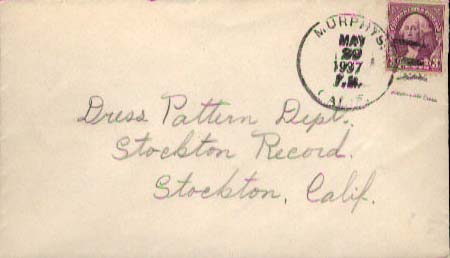 MURPHYS.
MAY
20
1937
P.M.
CALIF.
Dress Pattern Dept.
Stockton Record.
Stockton, Calif.